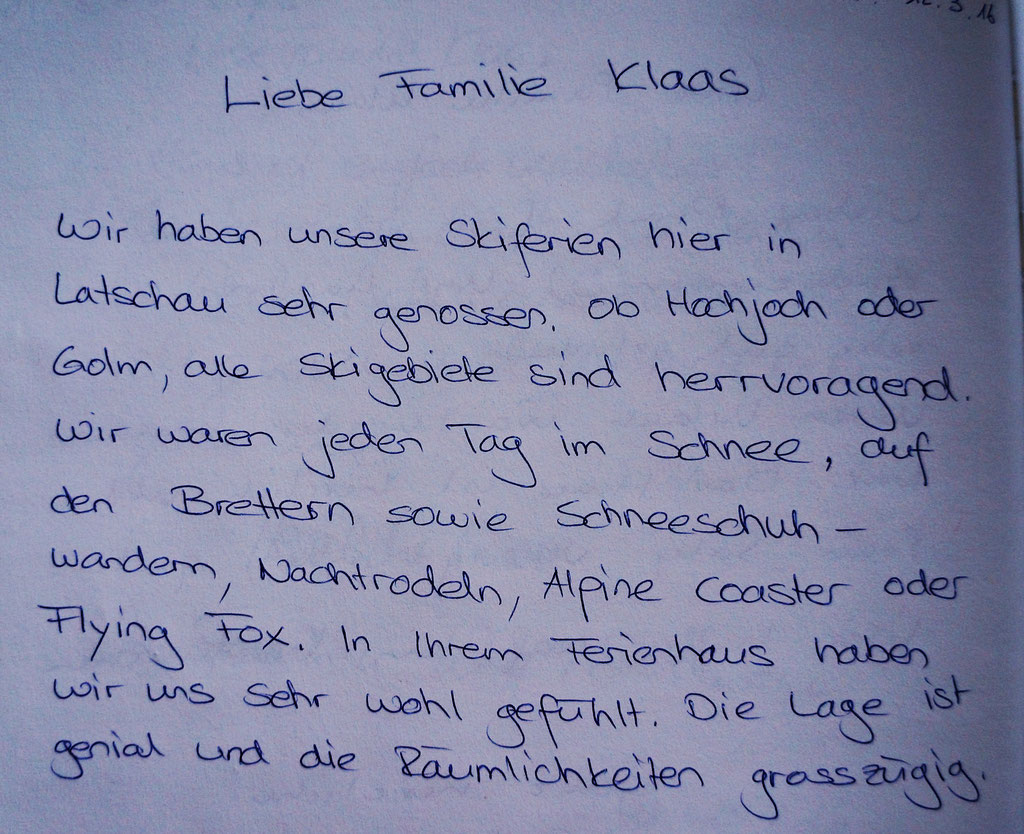 12.3.16
Liebe Familie Klaas
Wir haben unsere Skiferien hier in
Latschau sehr genossen. Ob Hochjoch oder
Golm, alle Skigebiete sind herrvoragend.
Wir waren jeden Tag im Schnee, auf
den Brettern sowie Schneeschuh-
wandern, Nachtrodeln, Alpine Coaster oder
Flying Fox. In Ihrem Ferienhaus haben
wir uns sehr wohl gefühlt. Die Lage ist
genial und die Räumlichkeiten grosszügig.